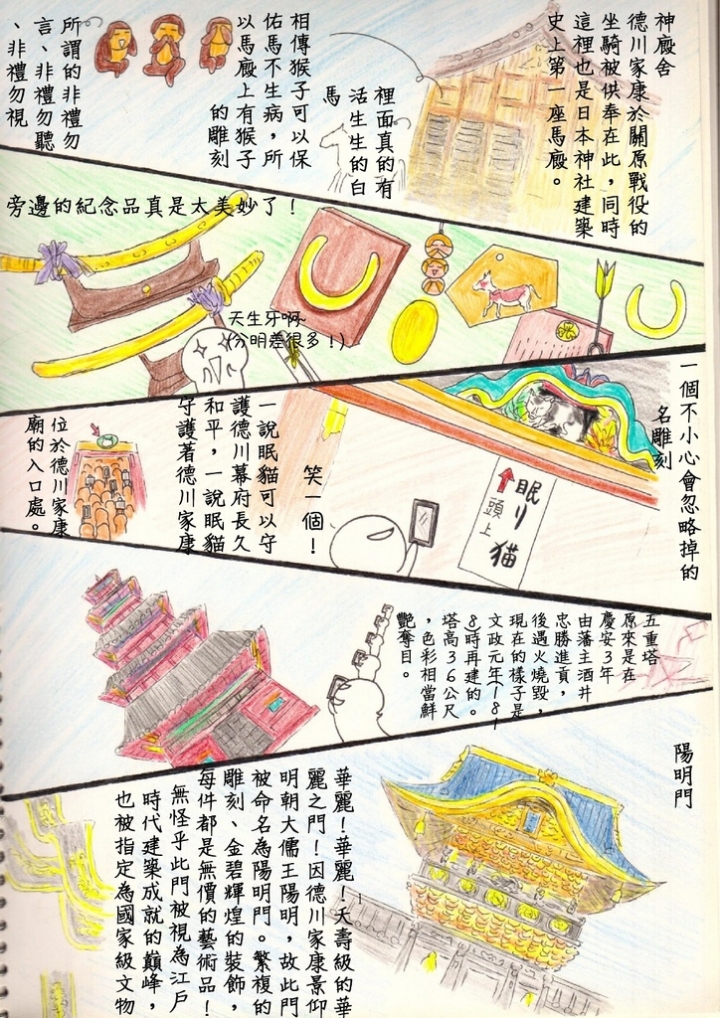 神廄舍
德川家康於關原戰役的
坐騎被供奉在此，同時
這裡也是日本神社建築
史上第一座馬廄。
裡面真的有
活生生的白
馬
相傳猴子可以保
佑馬不生病，所
以馬廄上有猴子
的雕刻
所謂的非禮勿
言、非禮勿聽
、非禮勿視
旁邊的紀念品真是太美妙了！
天生牙啊~
(分明差很多！)
一個不小心會忽略掉的
名雕刻
眠り猫
頭上
笑一個！
一說眠貓可以守
護德川幕府長久
和平，一說眠貓
守護著德川家康
位於德川家康
廟的入口處。
五重塔
原來是在
慶安3年
由藩主酒井
忠勝進貢，
後遇火燒毀，
現在的樣子是
文政元年(181
8時再建的。
塔高36公尺
，色彩相當鮮
艷奪目。
陽明門
華麗！華麗！夭壽級的華
麗之門！因德川家康景仰
明朝大儒王陽明，故此門
被命名為陽明門。繁複的
雕刻、金碧輝煌的裝飾，
每件都是無價的藝術品！
無怪乎此門被視為江戶
時代建築成就的巔峰，
也被指定為國家級文物